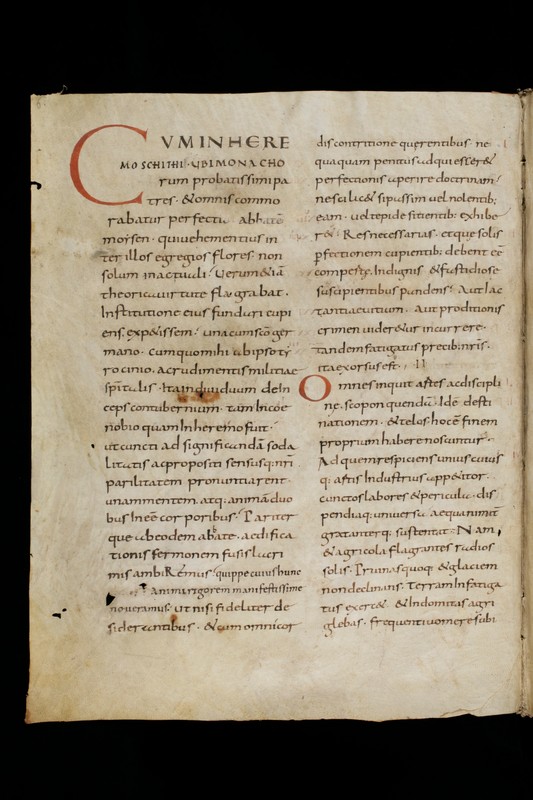 CUM IN HERE
MO SCHITHI · UBI MONACHO
rum probatissimi pa
tres · & omnis commo
rabatur perfectio abbatē
moysen · qui vehementius in
ter illos egregios flores · non
solum in actuali · Verum & iā
theorica virtute flagrabat ·
Institutione eius funduri cupi
ens. exp&issem · una cum scō ger
mano · cum quo mihi ab ipso ty
rocinio. ac rudimentis militiae
spiritalis · Ita individuum dein
ceps contubernium · tam in coe
nobio quam In heremo fuit ·
ut cuncti ad significandā soda
litatis ac propositi sensusq: nr̄i
parilitatem pronuntiarent ·
unam mentem. atq: animā duo
bus In eē corporibus · Pariter
que ab eodem abate · aedifica
tionis sermonem fusis lacri
mis ambiRemus · quippe cuius hunc
animi rigorem manifestissime
noveramus · ut nisi fideliter de
siderantibus · & cum omni cor
dis contritione querentibus ne
quaquam penitus adquiesser&
perfectionis aperire doctrinam
ne scilic& si passim vel nolentib:
eam · vel tepide sitientib: exhibe
r& · Res necessarias · et que solis
ꝑfectionem cupientib: debent eē
comperte. Indignis & fastidiose
suscipientibus pandens · Aut lac
tantiae vitium · Aut proditionis
crimen vider&ur incurrere ·
tandem fatigatus precib: nr̄is ·
ita exorsus est ·
Omnes inquit artes ac discipli
ne. scopon quendā · Idē desti
nationem · & telos · hoc ē finem
proprium habere noscuntur ·
Ad quem respiciens uniuscuius
q: artis Industrius app&itor ·
cunctos labores & pericula · dis
pendiaq: universa aequanimit̄
gratanterq: sustentat · Nam
& agricola flagrantes radios
solis · Prunasquoq: & glaciem
non declinans. Terram Infatiga
tus exerc& · & Indomitas agri
glebas · frequenti vomere subi